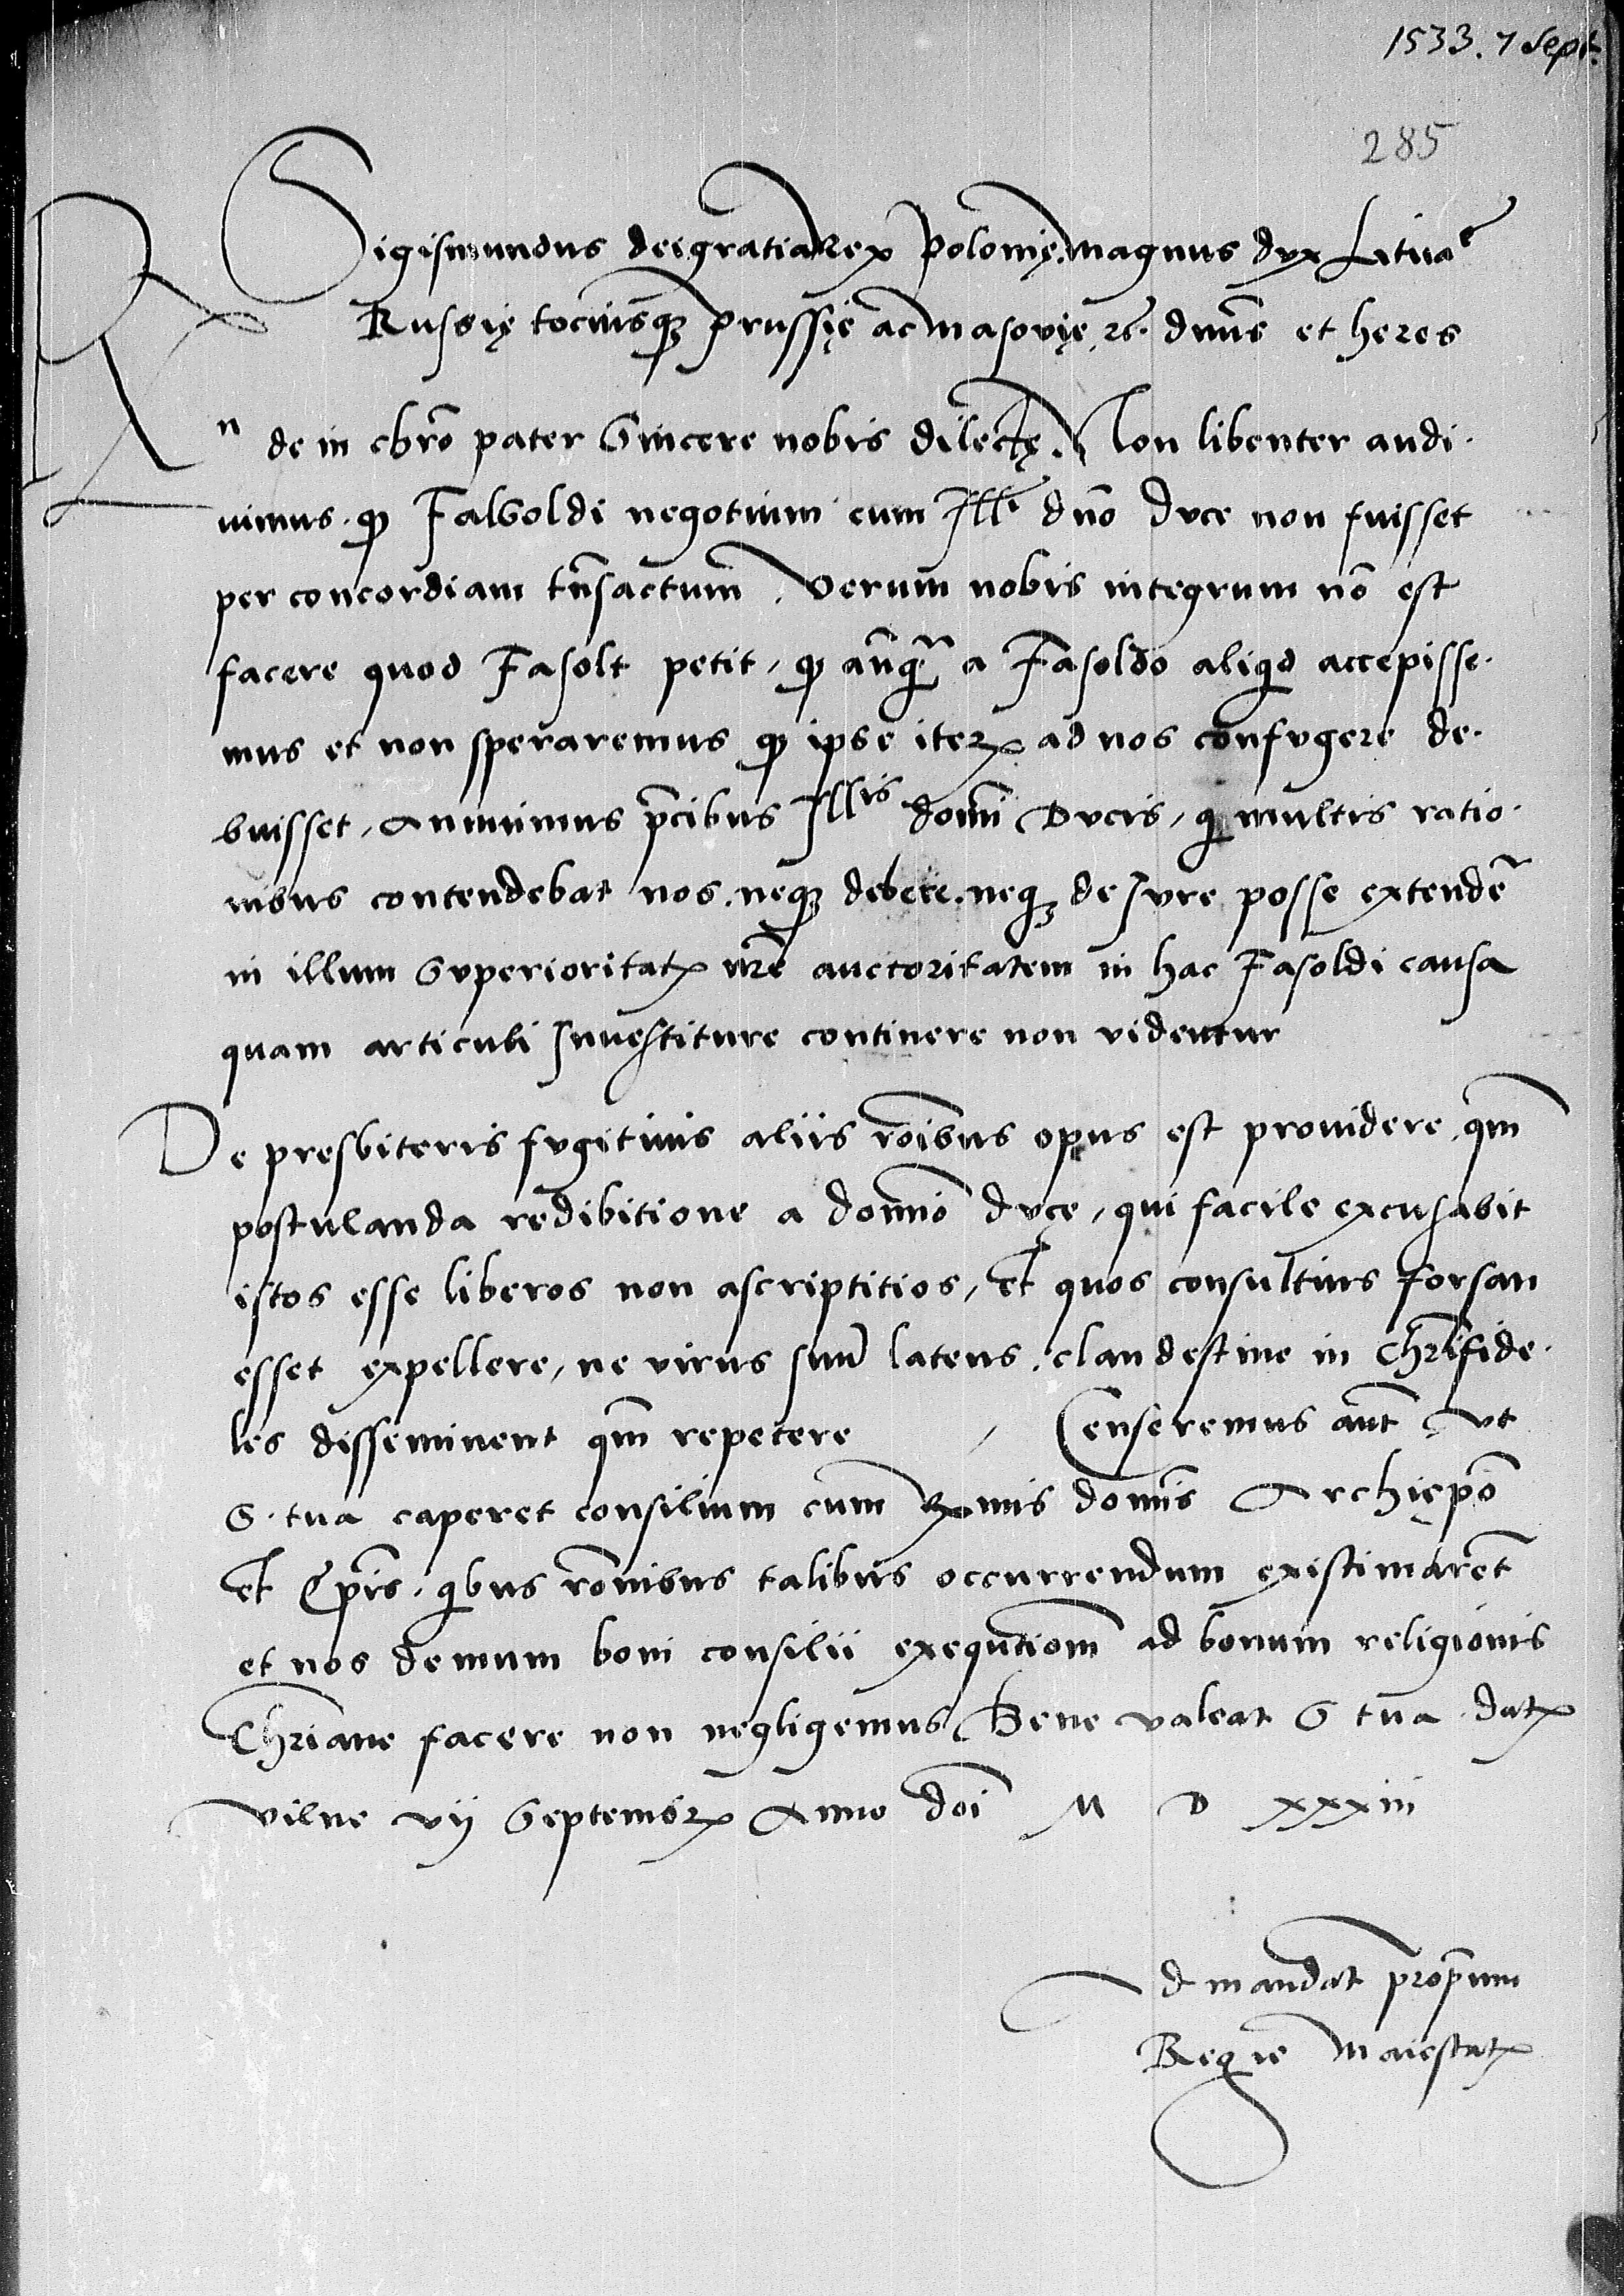 1533. 7 Sept.
285
Sigismundus dei gratia Rex Polonię. magnus dux Lituae
Russię tociusq₃ Prussię ac masovię, rc̄. dn̄us et heres
Rnde in chr̄o pater Sincere nobis dilectę. Non libenter audi-
vimus. qƺ Falsoldi negotium cum Illi dn̄o Duce non fuisset
per concordiam trn̄sactum. Verum nobis integrum nō est
facere quod Fasolt petit, qƺ anq̄ꝫ a Fasoldo aliqd accepisse-
mus et non speraremus qƺ ipse iterꝫ ad nos confugere de-
buisset, Annuimus p̄cibus Illis domi Ducis, q multis ratio-
nibus contendebat nos. neqꝫ debere. neqꝫ de Jure posse extendēr
in illum Superioritatꝫ nrē auctoritatem in hac Fasoldi causa
quam articuli Investiture continere non videntur
De presbiteris fugitivis aliis rōibus opus est providere, qm̄
postulanda redibitione a domīo ducę, qui facile excusabit
istos esse liberos non ascriptitios, et quos consultius forsan
esset expellere, ne virus suū latens, clandestine in Chrīfide-
les disseminent qm̄ repetere / Censeremus aūt ut
S. tua caperet consilium cum Rꝫmis domīs Archięp̄o
et Ep̄is. qbus rōnibus talibus occurrendum existimarēt
et nos demum boni consilii exequtiom̄ ad bonum religionis
Chr̄iane facere non negligemus. Bene valeat S tua datꝫ
Vilne vij Septembrꝫ Anno doī M D xxxiii
Ad mandat propriūm
Regie Maiestatꝫ